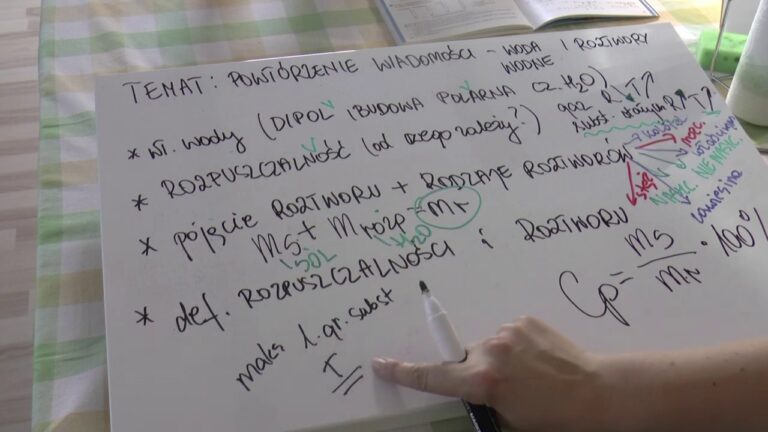 TEMAT: POWTÓRZENIE WIADOMOŚCI – WODA I ROZTWORY
WODNE
* wł. wody (DIPOL I BUDOWA POLARNA CZ. H₂O)
* ROZPUSZCZALNOŚĆ (od czego zależy?)
gaz R T↑
subst. R↑ T↑
* pojęcie ROZTWORU + RODZAJE ROZTWORÓW
ms + mrozp = mr
SÓL H₂O
* def. ROZPUSZCZALNOŚCI i ROZTWORU
maks. l. gr. subst
T
Cp = ms/mr · 100%
stęż.
NIENASYC.
zawiesina